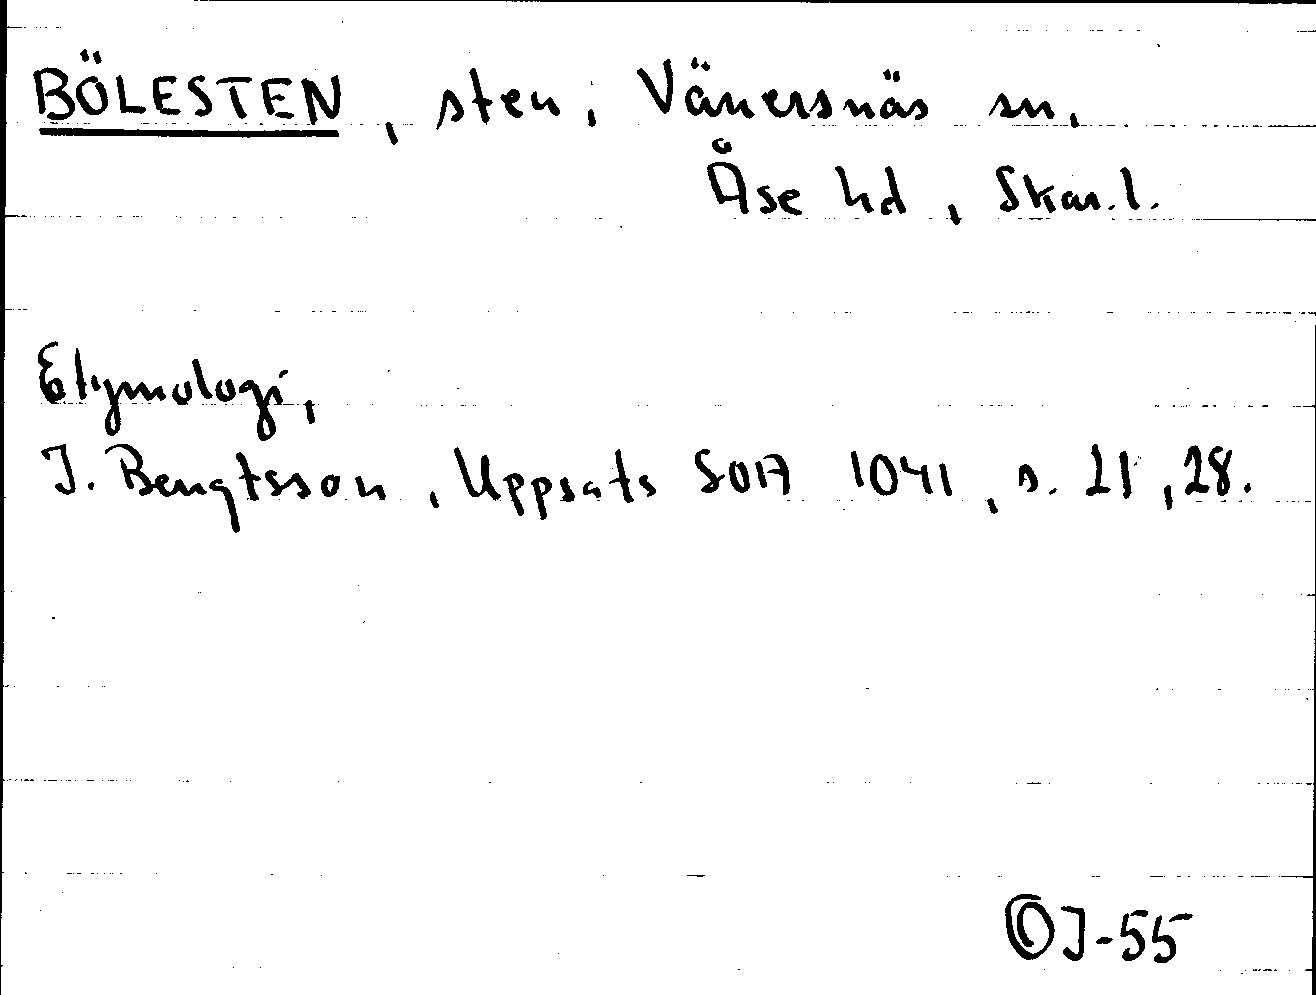 BÖLESTEN, sten, Vänersnäs sn,
Åse hd, Skar.l.
Etymologi,
J. Bengtsson, Uppsats SOA 1041, s. 21, 28.
OJ-55